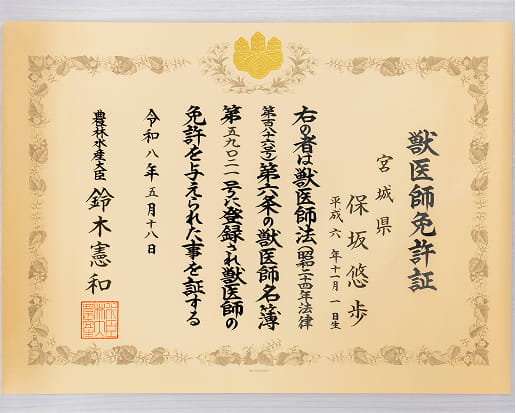 獣医師免許証
宮城県
保坂悠歩
平成六年十一月一日生
右の者は獣医師法(昭和二十四年法律
第百八十六号)第六条の獣医師名簿
第五九〇二一号に登録され獣医師の
免許を与えられた事を証する
令和八年五月十八日
農林水産大臣 鈴木憲和